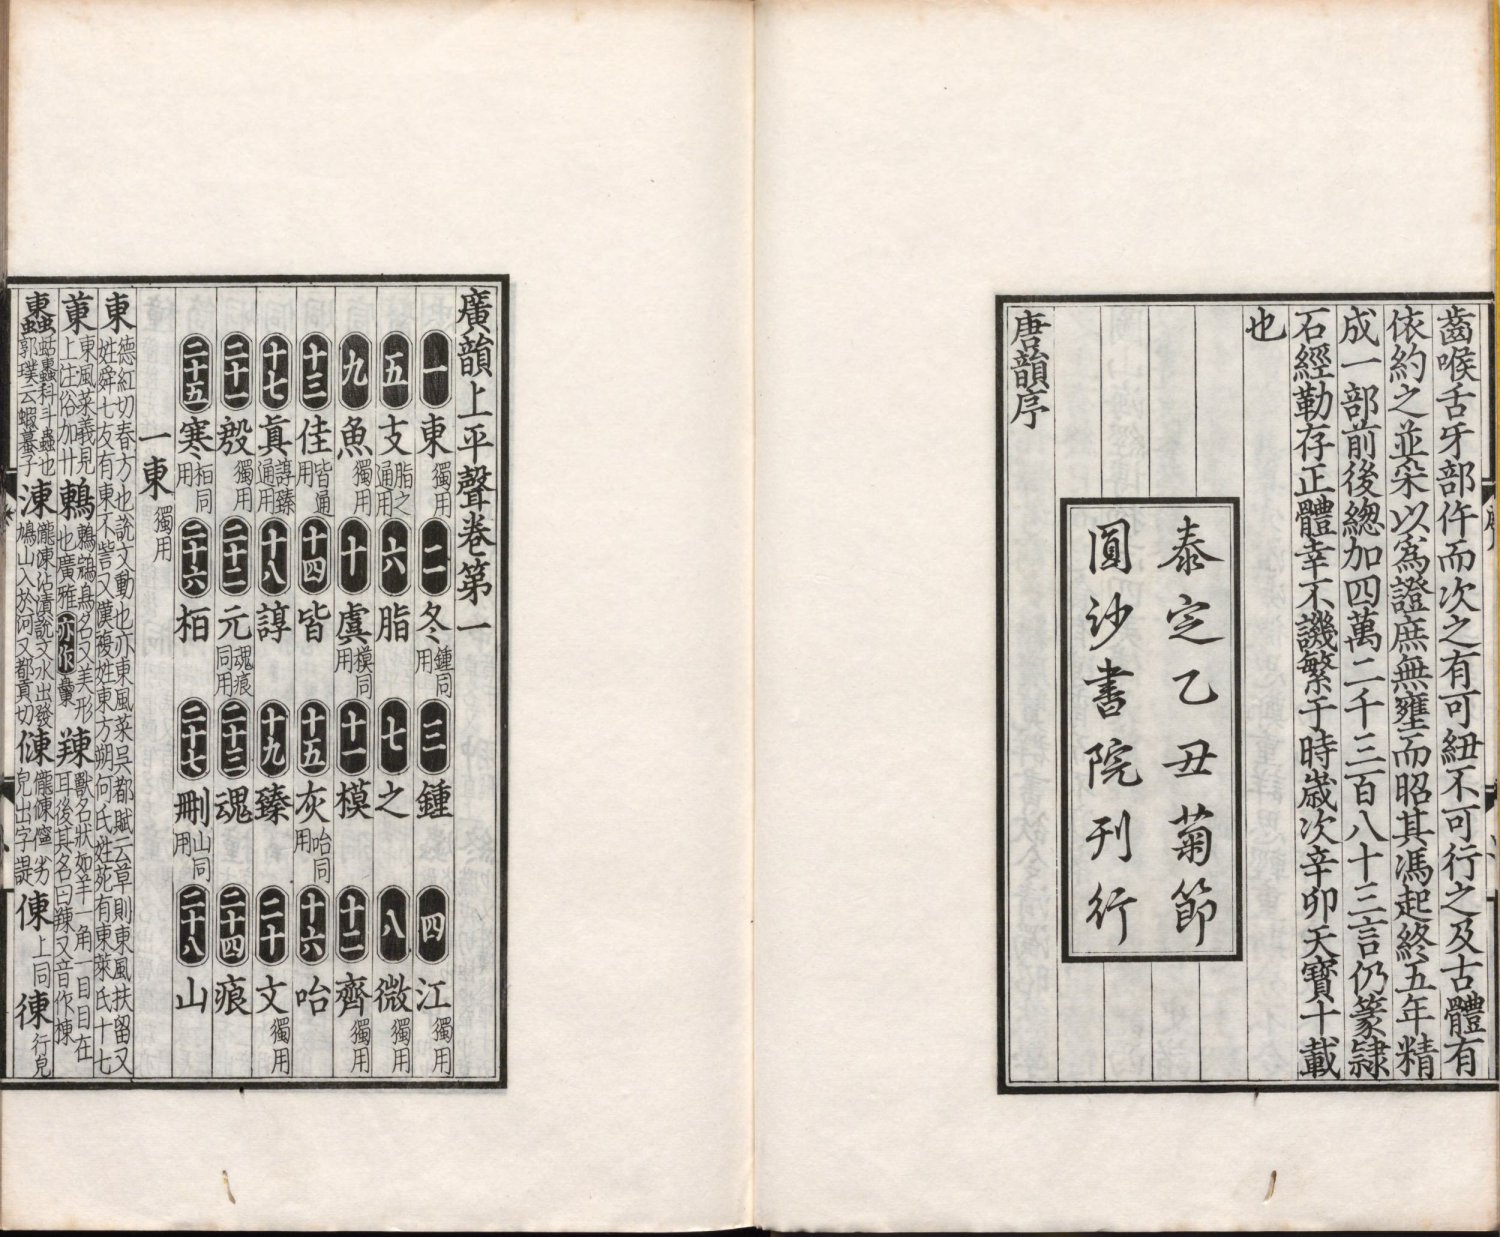 齒喉舌牙部仵而次之有可紐不可行之及古體有
依約之並朵以爲證庶無壅而昭其馮起終五年精
成一部前後總加四萬二千三百八十三言仍篆隷
石經勒存正體幸不譏繁于時歲次辛卯天寶十載
也
泰定乙丑菊節
圓沙書院刊行
唐韻序
廣韻上平聲卷第一
一東獨用 二冬鍾同用 三鍾 四江獨用
五支脂之通用 六脂 七之 八微獨用
九魚獨用 十虞模同用 十一模 十二齊獨用
十三佳皆通用 十四皆 十五灰咍同用 十六咍
十七眞諄臻通用 十八諄 十九臻 二十文獨用
二十一殷獨用 二十二元魂痕同用 二十三魂 二十四痕
二十五寒桓同用 二十六桓 二十七刪山同用 二十八山
一東獨用
東德紅切春方也說文動也亦東風菜吳都賦云草則東風扶留又
姓舜七友有東不訾又漢複姓東方朔何氏姓苑有東萊氏十七
菄東風菜義見上注俗加廾 鶇鶇鵍鳥名又美形也廣雅亦作𪂝 䍶獸名狀如羊一角一目目在耳後其名曰䍶又音作揀
䗖䗖科斗蟲也郭璞云蝦蟇子 涷瀧涷沾漬說文水出發鳩山入於河又都貢切 㑈儱㑈儜劣皃出字諟 倲上同 徚行皃